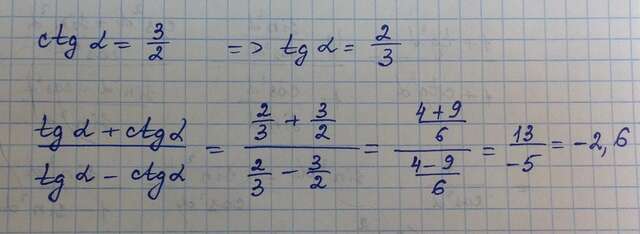 ctg α = 3/2 => tg α = 2/3
(tg α + ctg α)/(tg α - ctg α) = (2/3 + 3/2)/(2/3 - 3/2) = ((4+9)/6)/((4-9)/6) = 13/-5 = -2,6